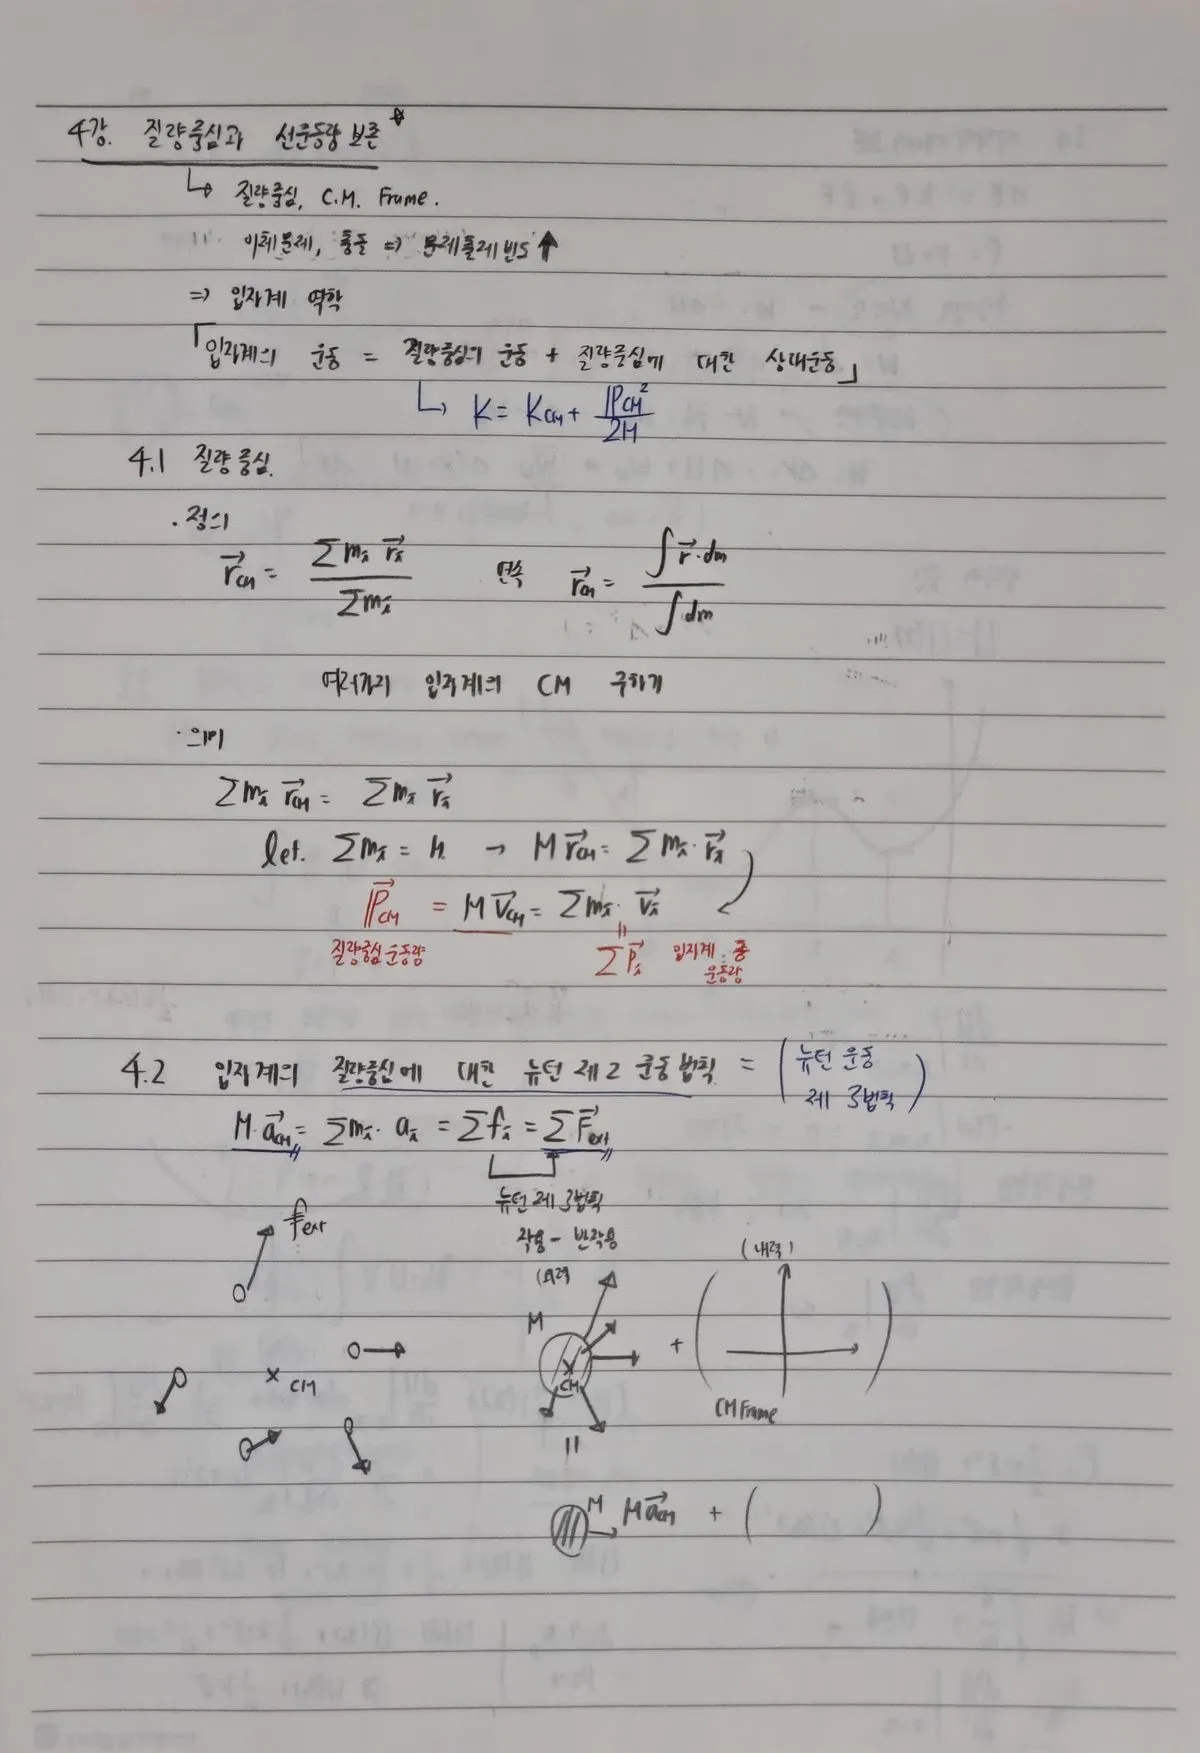 4강. 질량중심과 선운동량 보존 ☆
↳ 질량중심, C.M. Frame.
이체문제, 충돌 => 문제출제빈도 ↑
=> 입자계 역학
「입자계의 운동 = 질량중심의 운동 + 질량중심에 대한 상대운동」
↳ K = K_CM + P_CM² / 2M
4.1 질량중심.
· 정의
r⃗_CM = Σm_i r⃗_i / Σm_i 연속 r⃗_CM = ∫r⃗·dm / ∫dm
여러가지 입자계의 CM 구하기
· 의미
Σm_i r⃗_CM = Σm_i r⃗_i
let. Σm_i = M. → M r⃗_CM = Σm_i · r⃗_i
P⃗_CM = M v⃗_CM = Σm_i · v⃗_i
질량중심 운동량 || ΣP⃗_i 입자계 총 운동량
4.2 입자계의 질량중심에 대한 뉴턴 제2 운동법칙 = (뉴턴 운동 제3법칙)
M·a⃗_CM = Σm_i · a_i = Σf_i = ΣF⃗_ext
뉴턴 제3법칙
작용 - 반작용
f_ext
(외력
(내력)
M
CM
+ ( )
× CM
CM Frame
||
M M a⃗_CM + ( )